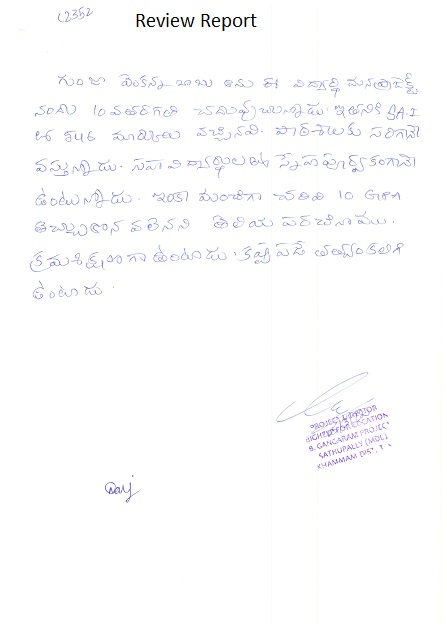 L2352
Review Report
గుంజా వెంకన్న బాబు అను ఈ విద్యార్థి మన ప్రాజెక్ట్
నందు 10వ తరగతి చదువుచున్నాడు. ఇతనికి SA-I
లో 546 మార్కులు వచ్చినవి. పాఠశాలకు సరిగానే
వస్తున్నాడు. సహ విద్యార్థులతో స్నేహ పూర్వకంగానే
ఉంటున్నాడు. ఇంకా మంచిగా చదివి 10 GPA
తెచ్చుకొన వలెనని తెలియ పరచినాము.
క్రమశిక్షణగా ఉంటాడు. కష్టపడే తత్వం కలిగి
ఉంటాడు.
PROJECT
EDUCATION
B. GANGARAM PROJECT
SATHUPALLY (MDL)
KHAMMAM DIST, T.S